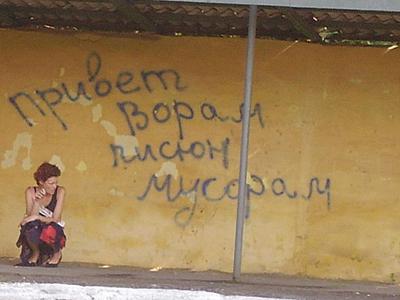 привет
ворам
писюн
мусорам